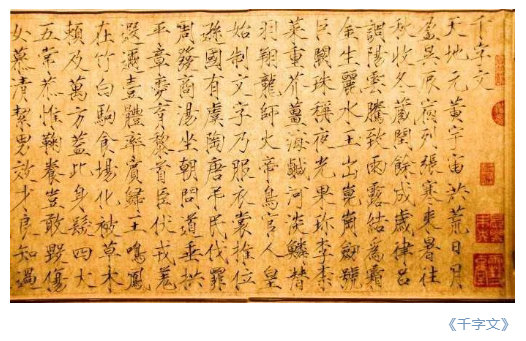 千字文
天地元黄宇宙洪荒日月
盈昃辰宿列張寒来暑往
秋收冬藏閏餘成歲律吕
調陽雲騰致雨露結為霜
金生麗水玉出崑崗劒號
巨闕珠稱夜光果珍李柰
菜重芥薑海鹹河淡鱗潛
羽翔龍師火帝鳥官人皇
始制文字乃服衣裳推位
遜國有虞陶唐弔民伐罪
周發商湯坐朝問道垂拱
平章愛育黎首臣伏戎羌
遐邇壹體率賓歸王鳴鳳
在竹白駒食場化被草木
頼及萬方蓋此身髮四大
五常恭惟鞠養豈敢毀傷
女慕清絜男效才良知過
《千字文》